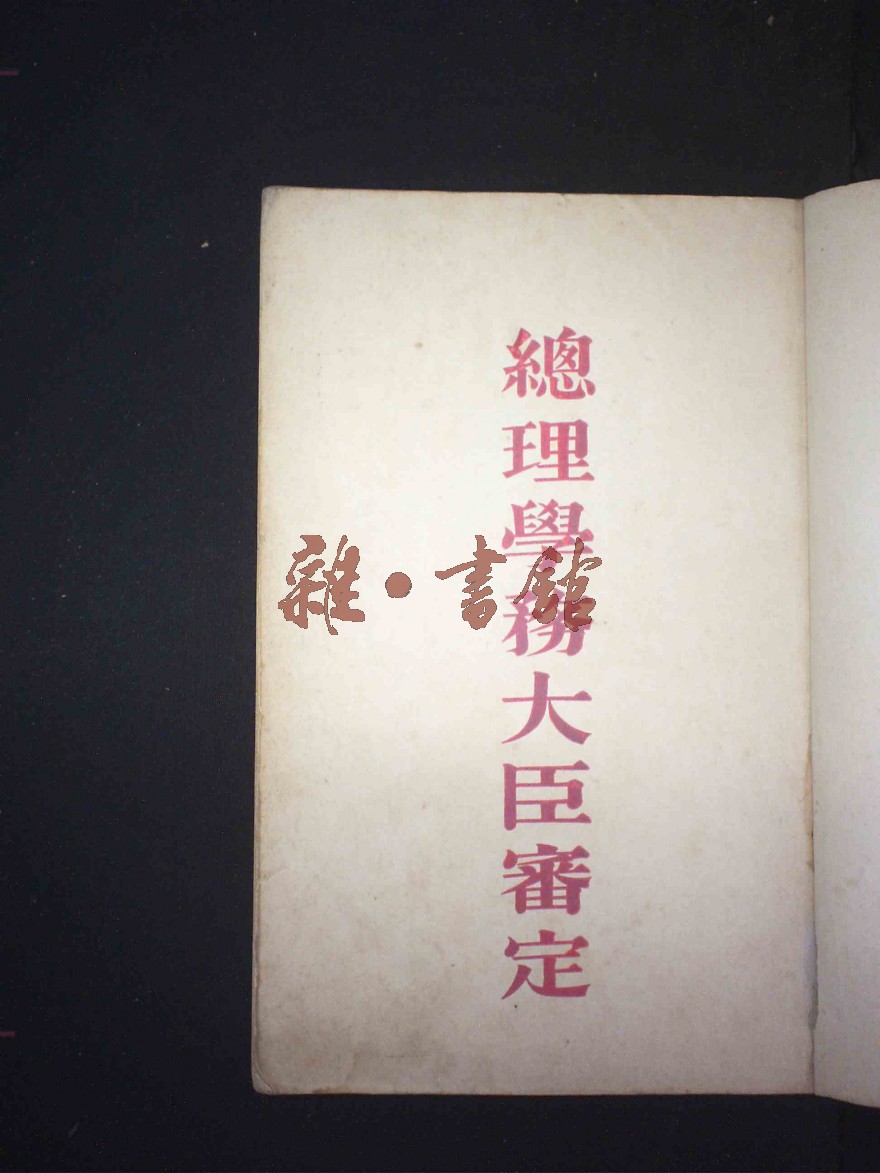 總理學務大臣審定
雜·書館